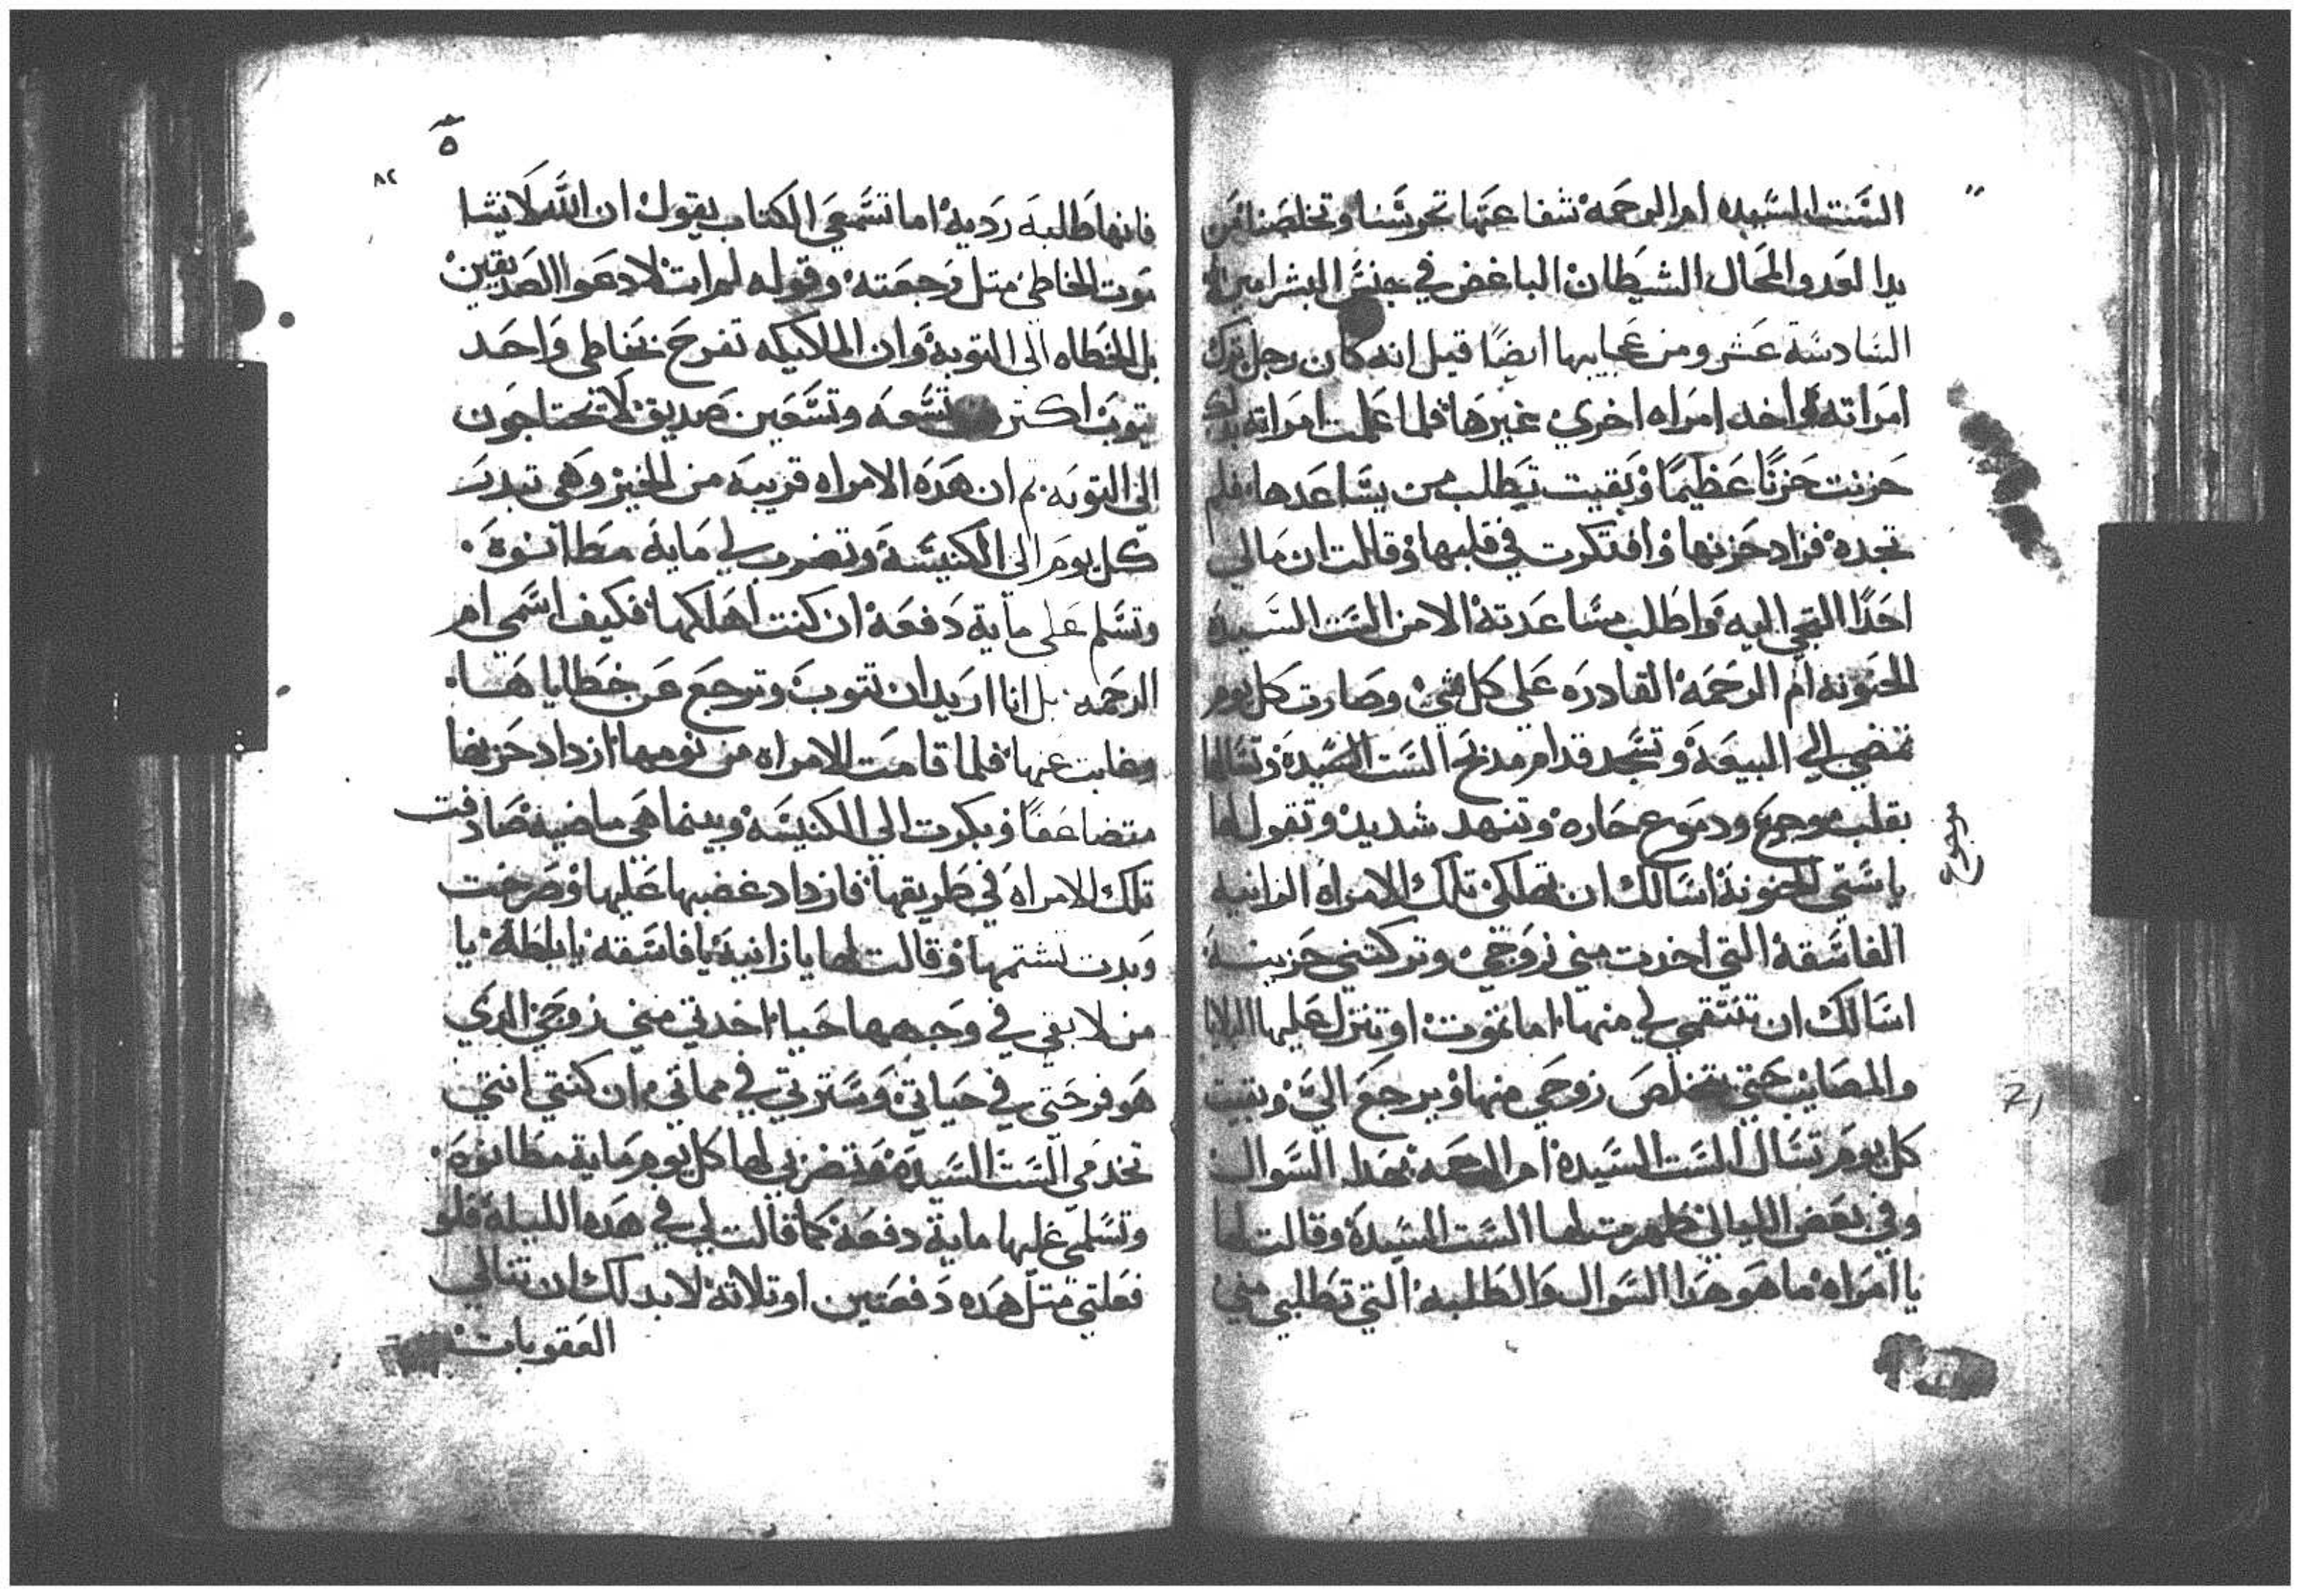 الست السيده ام الرحمه شفاعتها تحرسنا وتخلصنا من
يد العدو المحال الشيطان الباغض في جنس البشر امين
السادسة عشر ومن عجايبها ايضًا قيل انه كان رجل ترك
امراته واخد امراه اخري غيرها فلما علمت امراته بدلك
حزنت حزنًا عظيمًا وبقيت تطلب من يساعدها فلم
تجده فزاد حزنها وافتكرت في قلبها وقالت ان مالي
احدًا التجي اليه واطلب مساعدته الا من الست السيدة
الحنونه ام الرحمه القادره علي كل شي وصارت كل يوم
تمضي الي البيعة وتسجد قدام مدبح الست السيدة وتسالها
بقلب موجوع ودموع حاره وتنهد شديد وتقول لها
موجوع
يا ستي الحنونة اسالك ان تهلكي تلك الامراه الزانيه
الفاسقة التي اخدت مني زوجي وتركتني حزينة
اسالك ان تنتقمي لي منها اما تموت او تنزل عليها البلايا
والمصايب حتي يتخلص زوجي منها ويرجع الي وبقيت
كل يوم تسال الست السيدة ام الرحمه بهدا السوال
وفي بعض الليالي ظهرت لها الست السيدة وقالت لها
يا امراه ما هو هدا السوال والطلبه التي تطلبي مني
٨٢
فانها طلبه رديه اما تسمعي الكتاب يقول ان الله لا يشا
موت الخاطي متل رجعته وقوله لم ات لادعوا الصديقين
بل الخطاه الي التوبة وان الملاييكه تفرح بخاطي واحد
يتوب اكتر من تسعه وتسعين صديق لا تحتاجون
الي التوبه ثم ان هده الامراه قريبه من الخير وهي تبدر
كل يوم الي الكنيسة وتضرب لي ماية مطانوة
وتسلم علي ماية دفعة ان كنت اهلكها فكيف اسمي ام
الرحمه بل انا اريد ان تتوب وترجع عن خطاياها
وغابت عنها فلما قامت الامراه من نومها ازداد حزنها
متضاعفًا وبكرت الي الكنيسه وبينما هي ماضيه صادفت
تلك الامراه في طريقها فازداد غضبها عليها وصرخت
وبدت تشتمها وقالت لها يا زانية يا فاسقه يا باطلة يا
من لا بقي في وجهها حيا اخدتي مني زوجي الدي
هو فرحتي في حياتي وسترتي في مماتي ان كنتي انتي
تخدمي الست السيدة وتضربي لها كل يوم ماية مطانوة
وتسلمي عليها ماية دفعة كما قالت لي في هده الليلة فلو
فعلتي متل هده دفعتين او تلاتة لا بد لك ان تنالي
العقوبات